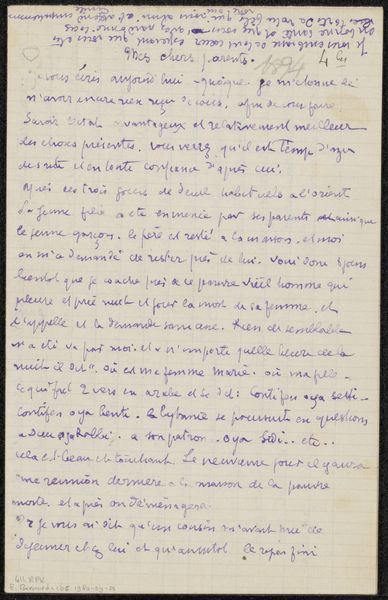 Je vous embrasse de tout coeur espérant que vous êtes
en bonne santé
1894
4 bis
Mes chers parents.
Je vous écris aujourd'hui quoique je m'étonne de
n'avoir encore rien reçu de vous, afin de vous faire
savoir l'état avantageux et relativement meilleur
des choses présentes, vous verrez qu'il est temps d'agir
de suite et en toute confiance d'après ceci.
Après ces trois jours de deuil habituels à l'orient
la jeune fille a été emmenée par ses parents ainsi que
le jeune garçon. le père est resté à la maison, et moi
on m'a demandé de rester près de lui. Voici donc 8 jours
bientôt que je couche près de ce pauvre vieil homme qui
pleure et prie nuit et jour la mort de sa femme, et
l'appelle et la demande sans cesse. Rien de semblable
n'a été vu par moi. et n'importe quelle heure de la
nuit il dit "où est ma femme Marie. où ma fille
2 vers en arabe et se dit:
oya benti.
à Dieu oya Robbi, à son patron. oya Sidi.. etc..
cela est beau et touchant. Le neuvième jour il y aura
une réunion dernière à la maison de la pauvre
morte. et après on déménagera.
Or je vous ai dit qu'un cousin m'avait prié de
déjeuner chez lui et qu'aussitôt le repas fini